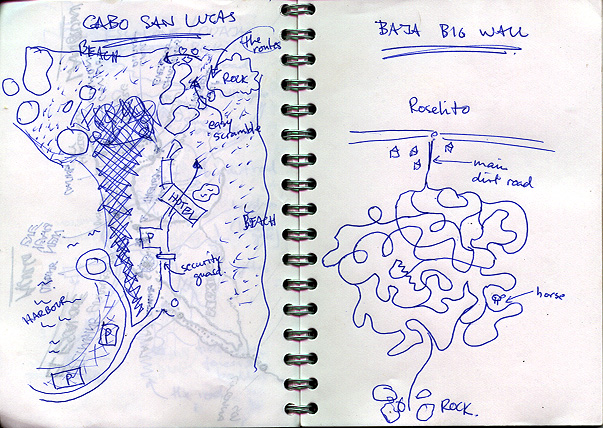 CABO SAN LUCAS
BEACH
the routes
ROCK
easy
scramble
HOTEL
BEACH
P
security
guard
HARBOUR
P
P
BAJA BIG WALL
Roselito
main
dirt road
horse
ROCK.